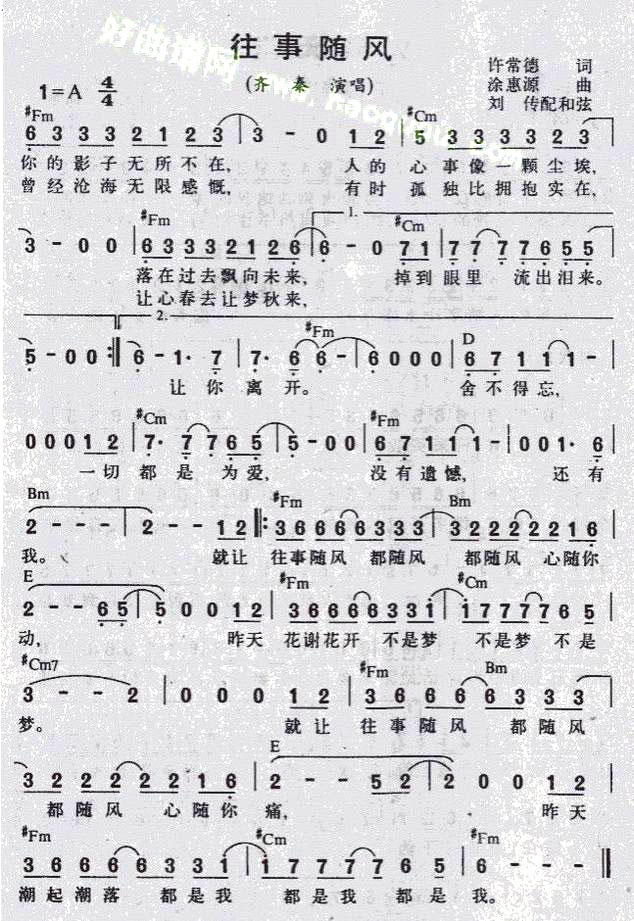 往事随风
(齐秦 演唱)
1=A 4/4
许常德 词
涂惠源 曲
刘 传配和弦
好曲谱网
#Fm #Cm
6 3 3 3 2 1 2 3 | 3 - 0 1 2 | 5 3 3 3 3 3 2 3 |
你的影子无所不在, 人的 心事像一颗尘埃,
曾经沧海无限感慨, 有时 孤独比拥抱实在,
#Fm 1. #Cm
3 - 0 0 | 6 3 3 3 2 1 2 6 | 6 - 0 7 1 | 7 7 7 7 7 6 5 5 |
落在过去飘向未来, 掉到 眼里 流出泪来。
让心春去让梦秋来,
2. #Fm D
5 - 0 0 :|| 6 - 1· 7 | 7· 6 6 - | 6 0 0 0 0 | 6 7 1 1 1 - |
让你 离开。 舍不得忘,
#Cm #Fm
0 0 0 1 2 | 7· 7 7 6 5 | 5 - 0 0 | 6 7 1 1 1 - | 0 0 1· 6 |
一切 都是 为爱, 没有遗憾, 还有
Bm #Fm Bm
2 - - - | 2 - - 1 2 ||: 3 6 6 6 6 3 3 3 | 3 2 2 2 2 2 1 6 |
我。 就让 往事随风 都随风 都随风 心随你
E #Fm #Cm
2 - - 6 5 | 5 0 0 1 2 | 3 6 6 6 6 3 3 1 | 1 7 7 7 7 6 5 |
动, 昨天 花谢花开 不是梦 不是梦 不是
#Cm7 #Fm Bm
3 - - 2 | 0 0 0 1 2 | 3 6 6 6 6 3 3 3 |
梦。 就让 往事随风 都随风
E
3 2 2 2 2 2 1 6 | 2 - - 5 2 | 2 0 0 1 2 |
都随风 心随你 痛, 昨天
#Fm #Cm #Fm
3 6 6 6 6 3 3 1 | 1 7 7 7 7 6 5 | 6 - - - ||
潮起潮落 都是我 都是我 都是我。